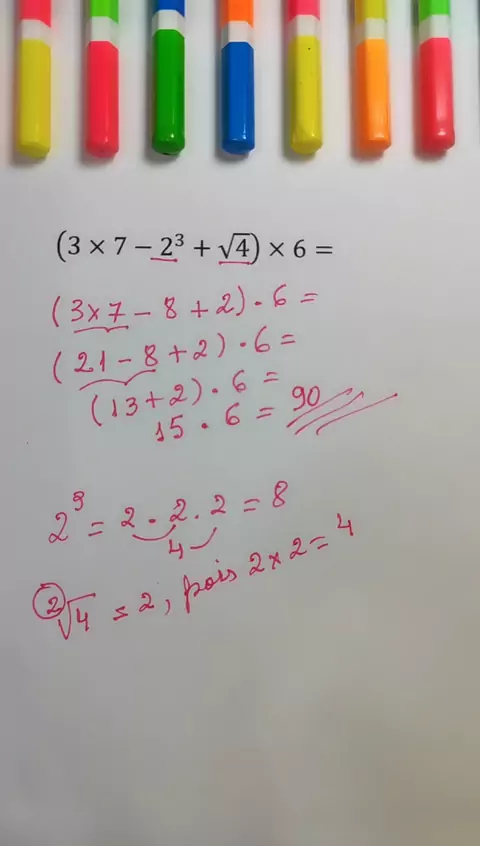 (3 × 7 − 2³ + √4) × 6 =
(3x7 − 8 + 2) · 6 =
(21 − 8 + 2) · 6 =
(13 + 2) · 6 =
15 · 6 = 90
2³ = 2 · 2 · 2 = 8
4
²√4 = 2, pois 2 × 2 = 4